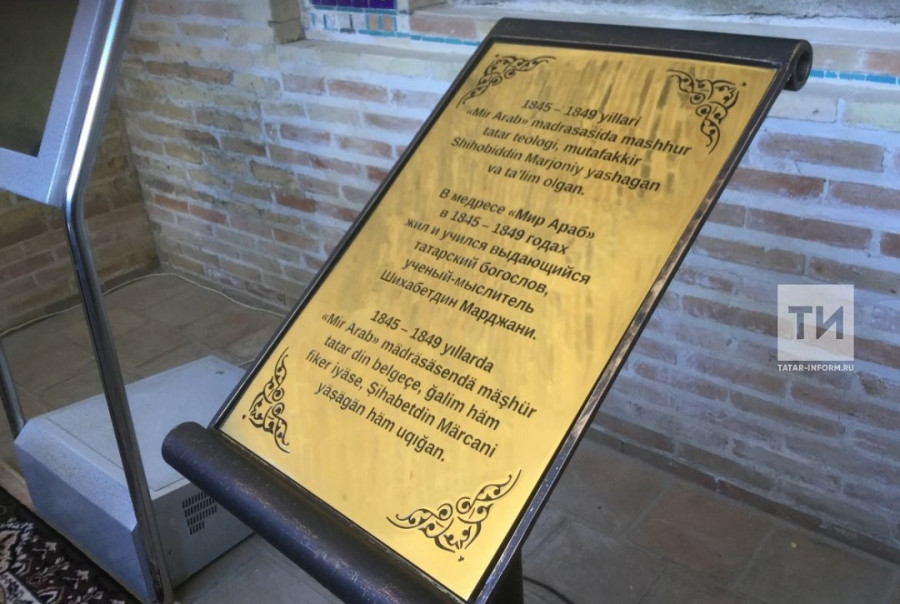 1845 – 1849 yillari
«Mir Arab» madrasasida mashhur
tatar teologi, mutafakkir
Shihobiddin Marjoniy yashagan
va ta'lim olgan.
В медресе «Мир Араб»
в 1845 – 1849 годах
жил и учился выдающийся
татарский богослов,
ученый-мыслитель
Шихабетдин Марджани.
1845 – 1849 yıllarda
«Mir Arab» mädräsäsendä mäşhür
tatar din belgeçe, ğalim häm
fiker iyäse, Şihabetdin Märcani
yäşägän häm uqığan.
ТИ
TATAR-INFORM.RU